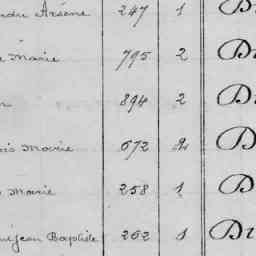 Arsène 247 1 D
Marie 795 2 D
894 2 D
Marie 672 2 D
Marie 258 1 D
Jean Baptiste 262 1 Du